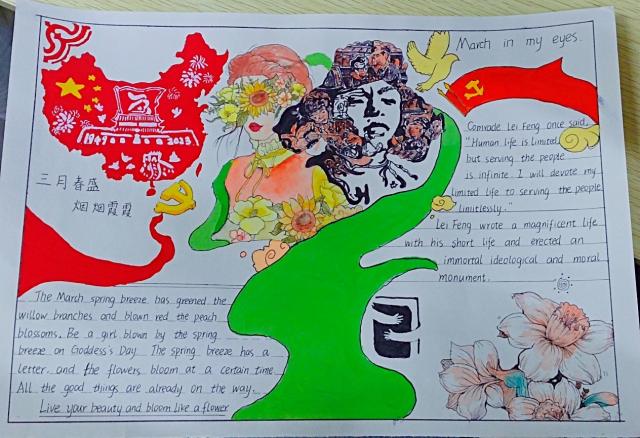 March in my eyes.
1949 2023
三月春盛
烟烟霞霞
Comrade Lei Feng once said,
"Human life is limited
but serving the people
is infinite. I will devote my
limited life to serving the people
limitlessly."
Lei Feng wrote a magnificent life
with his short life and erected an
immortal ideological and moral
monument.
The March spring breeze has greened the
willow branches and blown red the peach
blossoms. Be a girl blown by the spring
breeze on Goddess's Day. The spring breeze has a
letter, and the flowers bloom at a certain time.
All the good things are already on the way.
Live your beauty and bloom like a flower